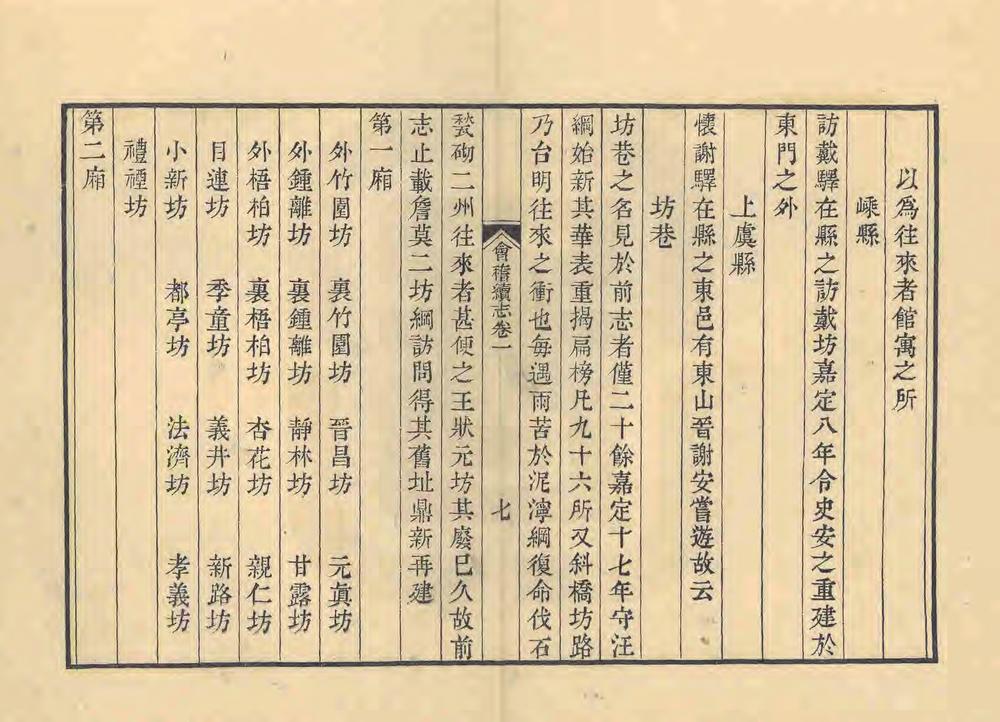 以爲往來者館寓之所
嵊縣
訪戴驛在縣之訪戴坊嘉定八年令史安之重建於
東門之外
上虞縣
懷謝驛在縣之東邑有東山晉謝安嘗遊故云
坊巷
坊巷之名見於前志者僅二十餘嘉定十七年守汪
綱始新其華表重揭扁榜凡九十六所又斜橋坊路
乃台明往來之衝也每遇雨苦於泥濘綱復命伐石
會稽續志卷一
七
甃砌二州往來者甚便之王狀元坊其廢已久故前
志止載詹莫二坊綱訪問得其舊址鼎新再建
第一廂
外竹園坊 裏竹園坊 晉昌坊 元眞坊
外鍾離坊 裏鍾離坊 靜林坊 甘露坊
外梧柏坊 裏梧柏坊 杏花坊 親仁坊
目連坊 季童坊 義井坊 新路坊
小新坊 都亭坊 法濟坊 孝義坊
禮禋坊
第二廂